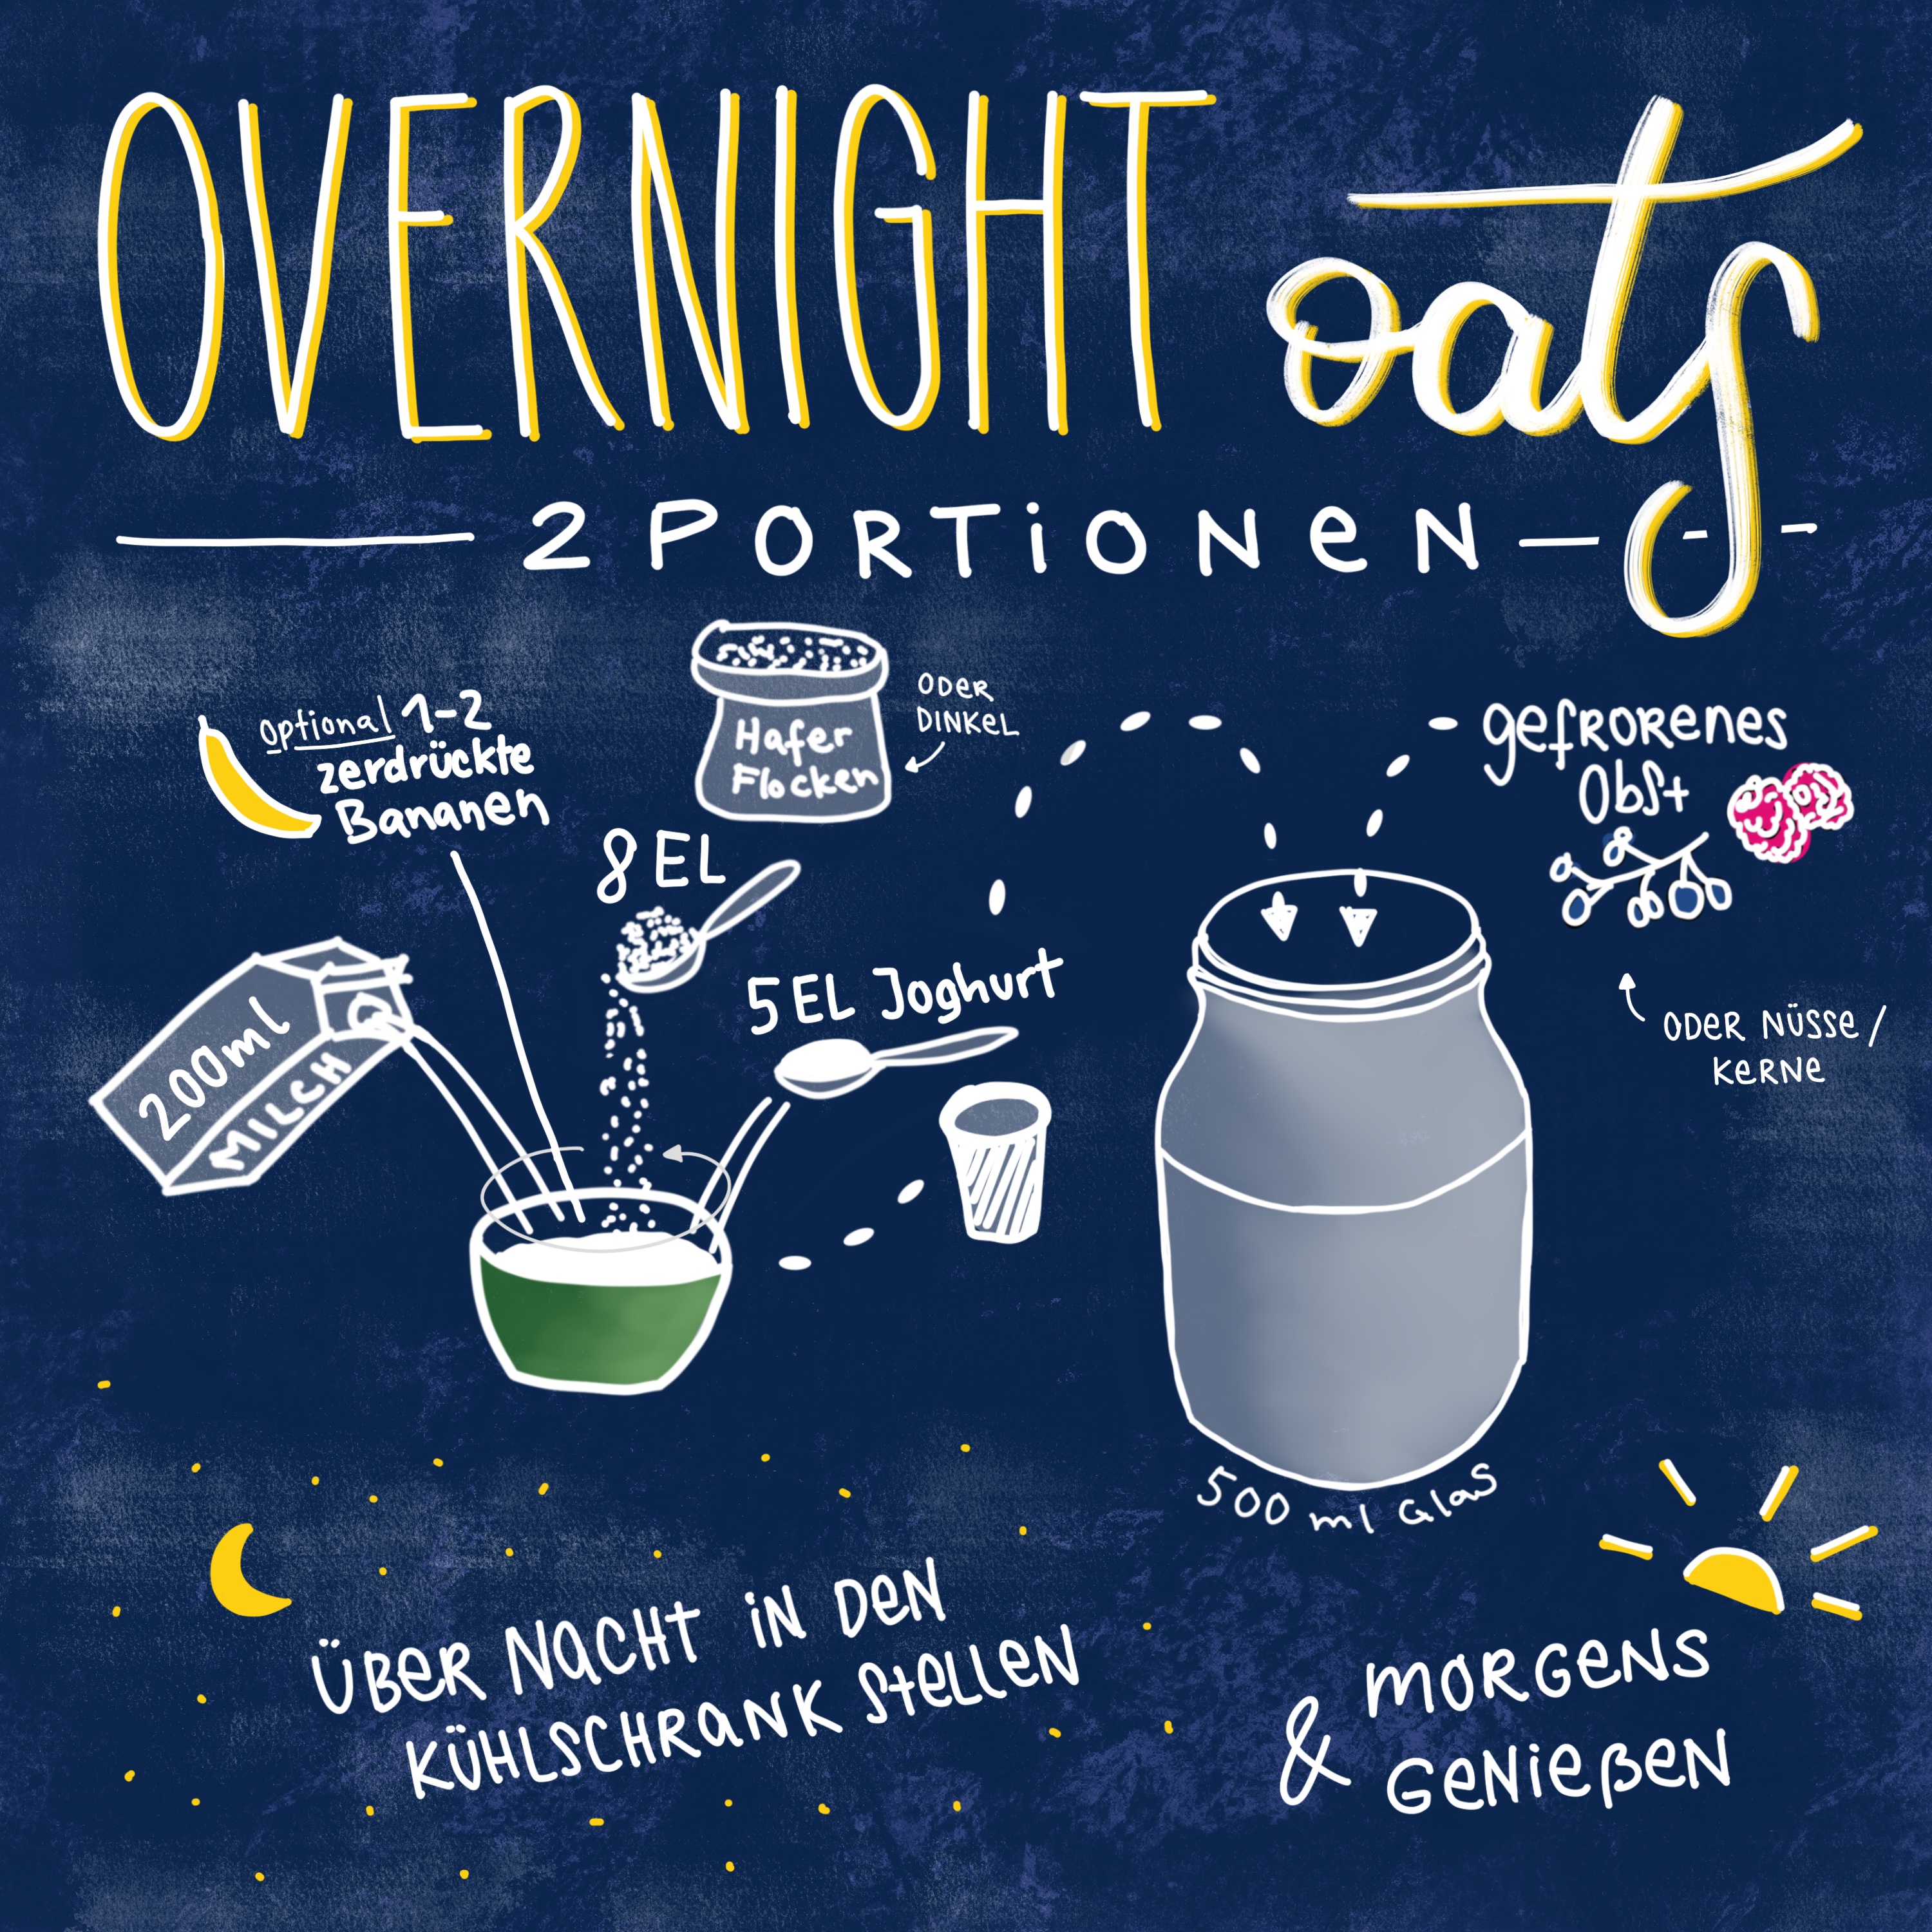 OVERNIGHT oats
2 PORTiONeN
optional 1-2
zerdrückte
Bananen
Hafer
Flocken
ODer
DINKeL
8 EL
5 EL Joghurt
200ml
MILCH
gefRORenes
Obst
ODER NÜSSe /
KeRNe
500 ml Glas
ÜBeR NaCHT iN DeN
KÜHLSCHRaNK SteLLeN
& MORGeNS
GeNießeN